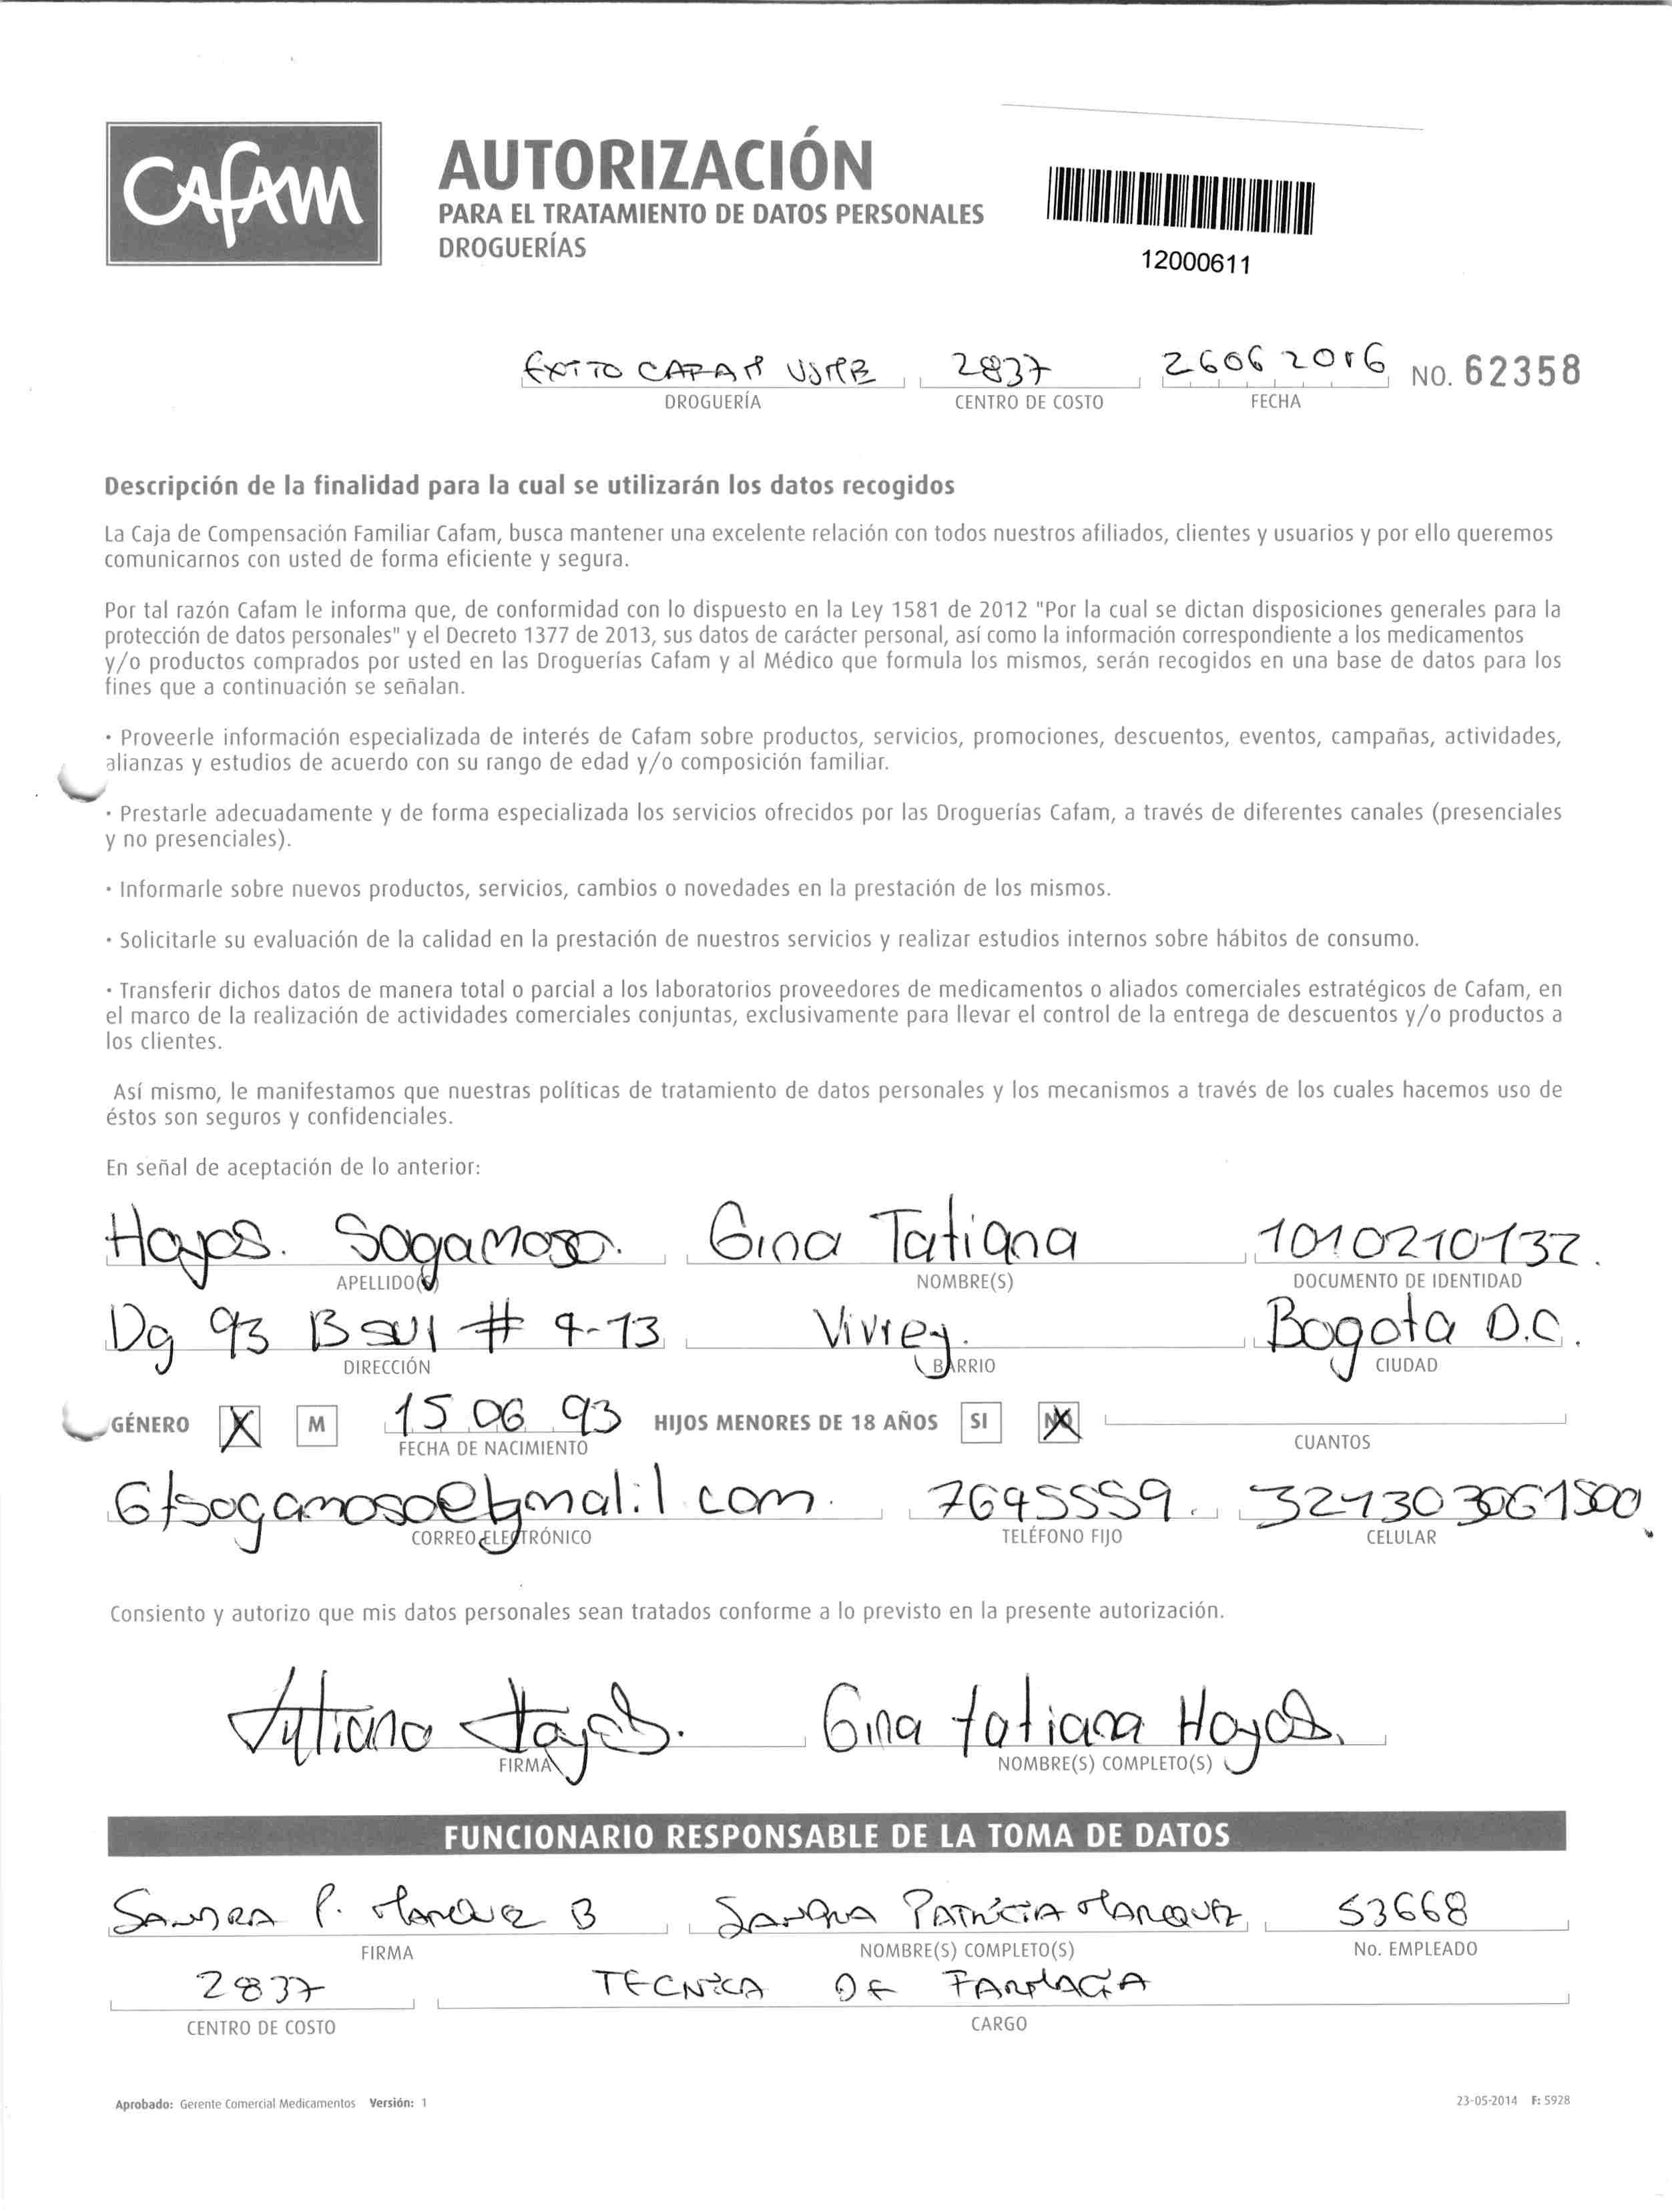 Cafam
AUTORIZACIÓN
PARA EL TRATAMIENTO DE DATOS PERSONALES
DROGUERÍAS
12000611
EXITO CAFAM USME 2837 26062016 NO. 62358
DROGUERÍA CENTRO DE COSTO FECHA
Descripción de la finalidad para la cual se utilizarán los datos recogidos
La Caja de Compensación Familiar Cafam, busca mantener una excelente relación con todos nuestros afiliados, clientes y usuarios y por ello queremos
comunicarnos con usted de forma eficiente y segura.
Por tal razón Cafam le informa que, de conformidad con lo dispuesto en la Ley 1581 de 2012 "Por la cual se dictan disposiciones generales para la
protección de datos personales" y el Decreto 1377 de 2013, sus datos de carácter personal, así como la información correspondiente a los medicamentos
y/o productos comprados por usted en las Droguerías Cafam y al Médico que formula los mismos, serán recogidos en una base de datos para los
fines que a continuación se señalan.
· Proveerle información especializada de interés de Cafam sobre productos, servicios, promociones, descuentos, eventos, campañas, actividades,
alianzas y estudios de acuerdo con su rango de edad y/o composición familiar.
· Prestarle adecuadamente y de forma especializada los servicios ofrecidos por las Droguerías Cafam, a través de diferentes canales (presenciales
y no presenciales).
· Informarle sobre nuevos productos, servicios, cambios o novedades en la prestación de los mismos.
· Solicitarle su evaluación de la calidad en la prestación de nuestros servicios y realizar estudios internos sobre hábitos de consumo.
· Transferir dichos datos de manera total o parcial a los laboratorios proveedores de medicamentos o aliados comerciales estratégicos de Cafam, en
el marco de la realización de actividades comerciales conjuntas, exclusivamente para llevar el control de la entrega de descuentos y/o productos a
los clientes.
Así mismo, le manifestamos que nuestras políticas de tratamiento de datos personales y los mecanismos a través de los cuales hacemos uso de
éstos son seguros y confidenciales.
En señal de aceptación de lo anterior:
Hoyos. Sogamoso. Gina Tatiana 1010210132.
APELLIDO(S) NOMBRE(S) DOCUMENTO DE IDENTIDAD
Dg 93 B sur # 9-13 Virrey. Bogota D.C.
DIRECCIÓN BARRIO CIUDAD
GÉNERO X M 15 06 93 HIJOS MENORES DE 18 AÑOS SI NO
FECHA DE NACIMIENTO CUANTOS
7695559.
CORREO ELECTRÓNICO TELÉFONO FIJO CELULAR
Consiento y autorizo que mis datos personales sean tratados conforme a lo previsto en la presente autorización.
Tatiana Hoyos. Gina tatiana Hoyos.
FIRMA NOMBRE(S) COMPLETO(S)
FUNCIONARIO RESPONSABLE DE LA TOMA DE DATOS
SANDRA P. MARQUEZ B SANDRA PATRICIA MARQUEZ 53668
FIRMA NOMBRE(S) COMPLETO(S) No. EMPLEADO
2837 TECNICA DE FARMACIA
CENTRO DE COSTO CARGO
Aprobado: Gerente Comercial Medicamentos Versión: 1 23-05-2014 F: 5928